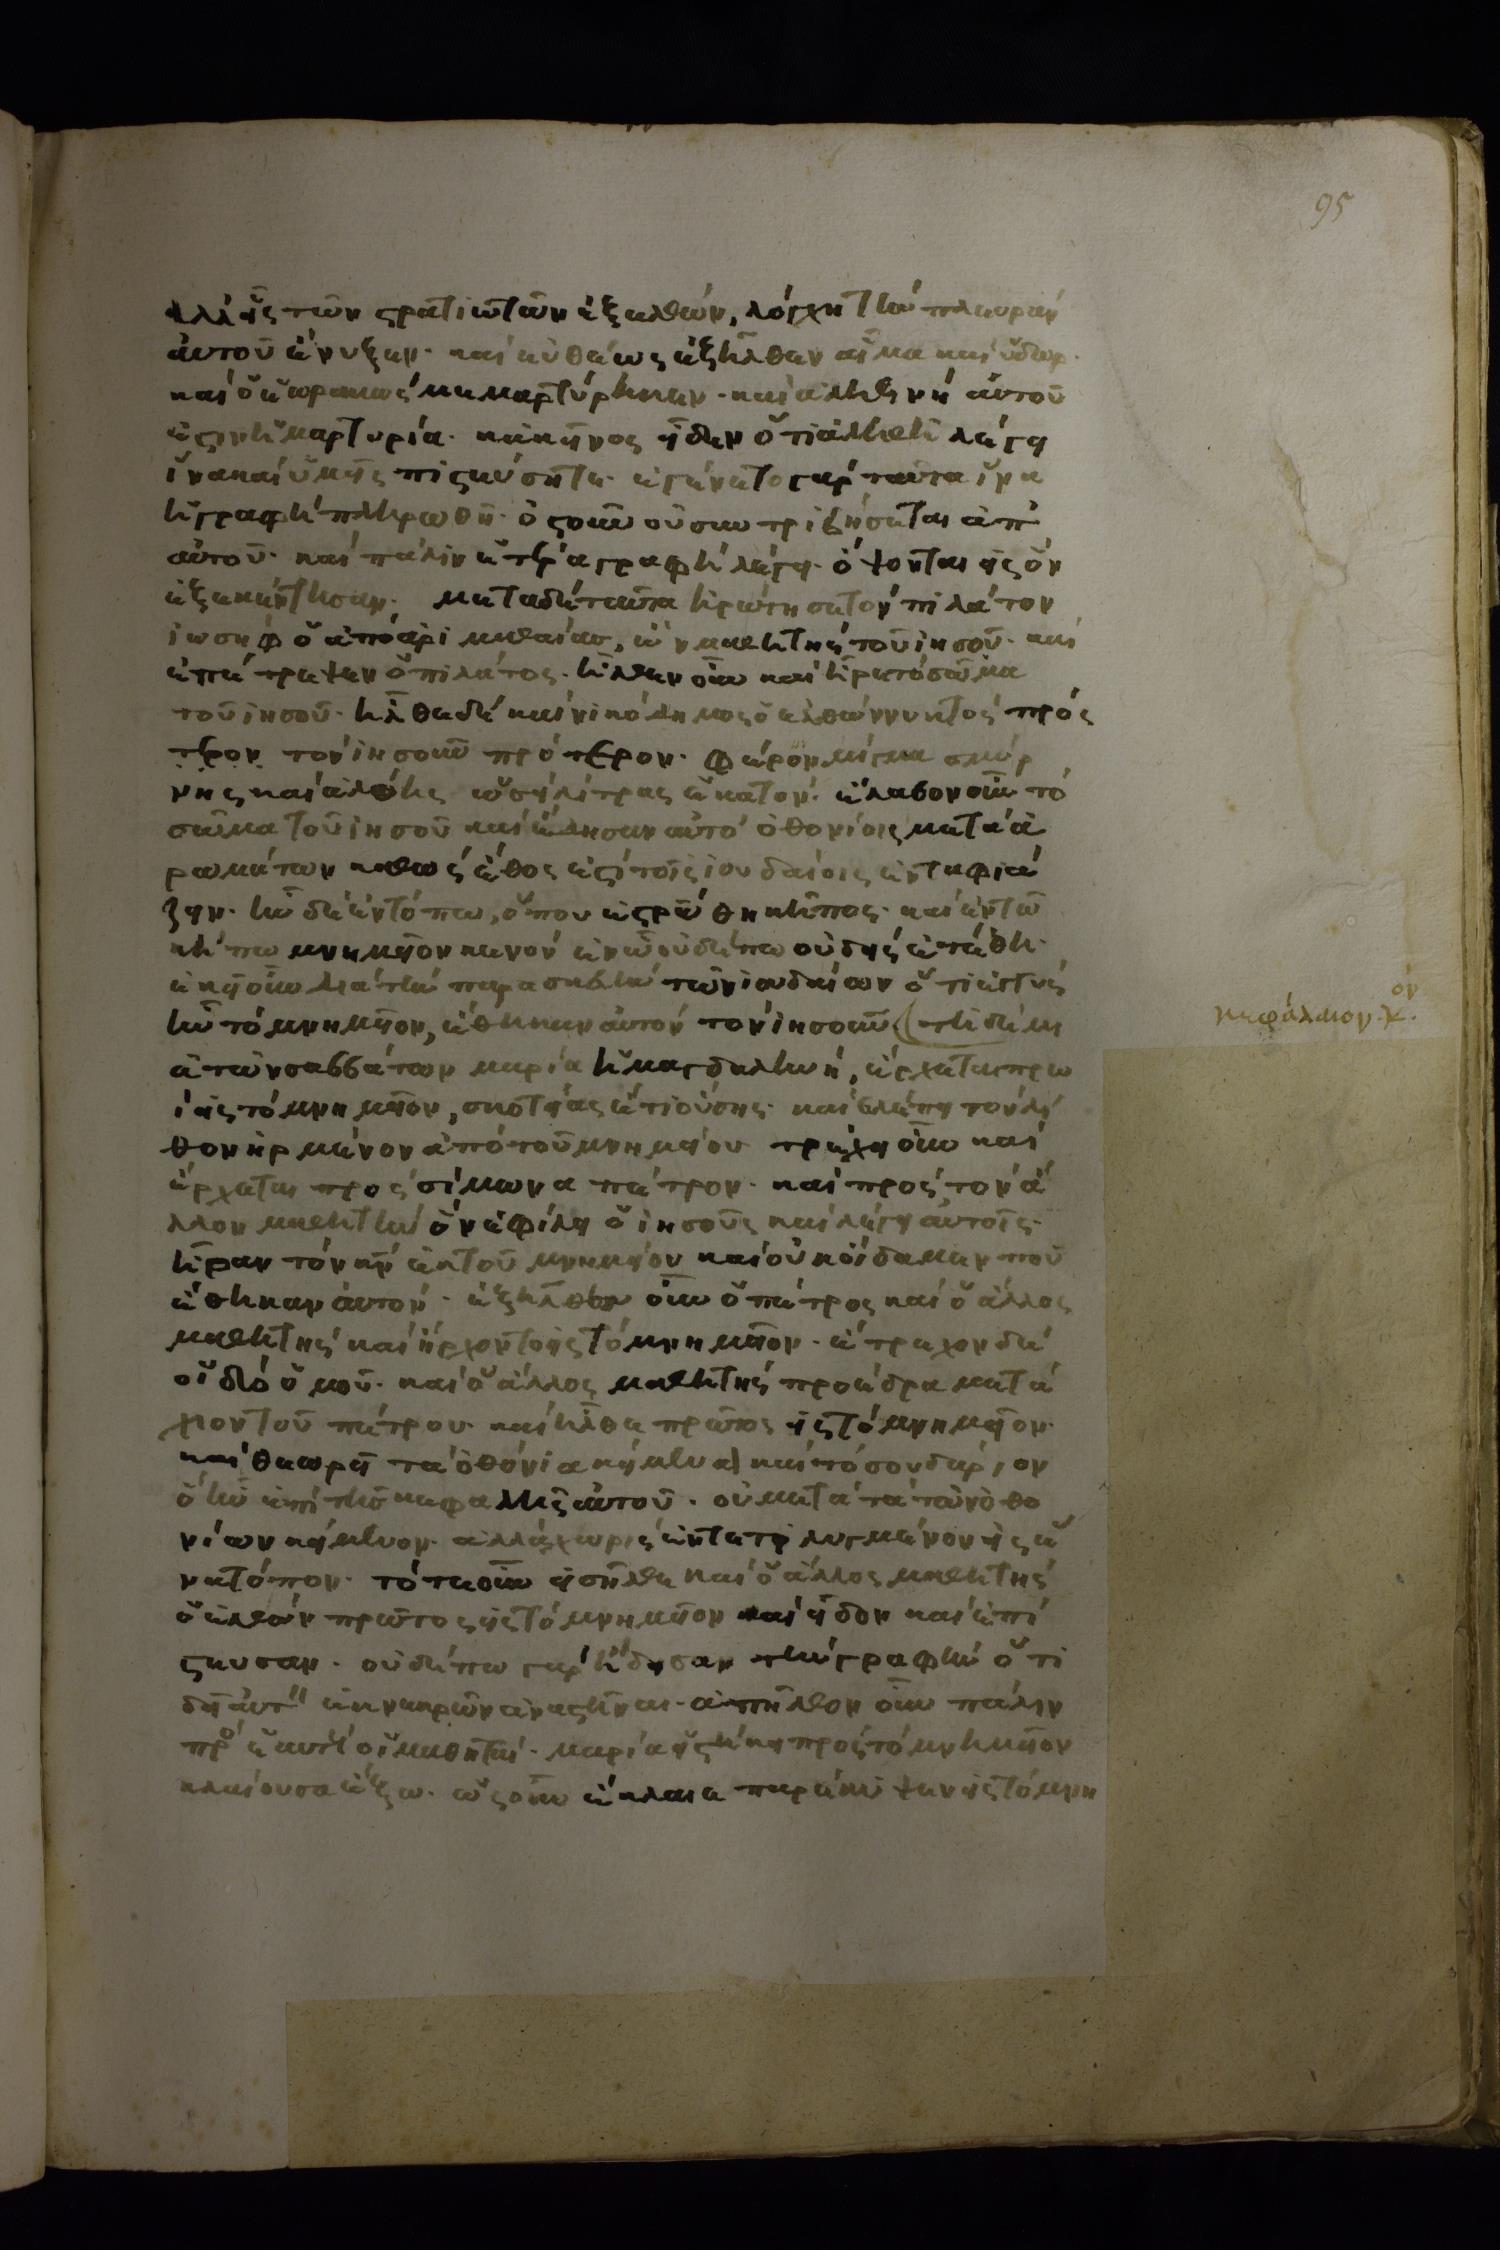 95
λλ' εἷς τῶν στρατιωτῶν ἐξελθών, λόγχη τὴν πλευρὰν
αὐτοῦ ἔνυξεν· καὶ εὐθέως ἐξῆλθεν αἷμα καὶ ὕδωρ·
καὶ ὁ ἑωρακὼς μεμαρτύρηκεν· καὶ ἀληθινὴ αὐτοῦ
ἐστιν ἡ μαρτυρία· κἀκεῖνος εἶδεν ὅτι ἀληθῆ λέγει
ἵνα καὶ ὑμεῖς πιστεύσητε· ἐγένετο γὰρ ταῦτα ἵνα
ἡ γραφὴ πληρωθῆ· ὀστοῦν οὐ συντριβήσεται ἀπ'
αὐτοῦ· καὶ πάλιν ἑτέρα γραφὴ λέγει· ὄψονται εἰς ὃν
ἐξεκέντησαν· μετὰ δὲ ταῦτα ἠρώτησε τὸν πιλάτον
ἰωσὴφ ὁ ἀπὸ ἀριμαθαίας, ὢν μαθητὴς τοῦ ἰησοῦ· καὶ
ἐπέτρεψεν ὁ πιλάτος· ἦλθεν οὖν καὶ ἦρε τὸ σῶμα
τοῦ ἰησοῦ· ἦλθε δὲ καὶ νικόδημος ὁ ἐλθὼν νυκτὸς πρό
τερον τὸν ἰησοῦν πρότερον· φέρον μίγμα σμύρ
νης καὶ ἀλόης ὡσεὶ λίτρας ἑκατόν· ἔλαβον οὖν τὸ
σῶμα τοῦ ἰησοῦ καὶ ἔδησαν αὐτὸ ὀθονίοις μετὰ ἀ
ρωμάτων καθὼς ἔθος ἐστὶ τοῖς ἰουδαίοις ἐνταφιά
ζειν· ἦν δὲ ἐν τόπω, ὅπου ἐστρώθη κῆπος· καὶ ἐν τῶ
κήπω μνημεῖον κενὸν ἐν ὧ οὐδέπω οὐδεὶς ἐτέθη·
ἐκεῖ οὖν διὰ τὴν παρασκευὴν τῶν ἰουδαίων ὅτι ἐγγὺς
ἦν τὸ μνημεῖον, ἔθηκαν αὐτὸν τὸν ἰησοῦν (τῆ δὲ μι
ᾶ τῶν σαββάτων μαρία ἡ μαγδαληνή, ἔρχεται πρω
ὶ εἰς τὸ μνημεῖον, σκοτίας ἔτι οὔσης· καὶ βλέπει τὸν λί
θον ἠρμένον ἀπὸ τοῦ μνημείου τρέχει οὖν καὶ
ἔρχεται πρὸς σίμωνα πέτρον· καὶ πρὸς τὸν ἄ
λλον μαθητὴν ὃν ἐφίλει ὁ ἰησοῦς καὶ λέγει αὐτοῖς·
ἦραν τὸν κν ἐκ τοῦ μνημείου καὶ οὐκ οἴδαμεν ποῦ
ἔθηκαν αὐτόν· ἐξῆλθεν οὖν ὁ πέτρος καὶ ὁ ἄλλος
μαθητὴς καὶ ἤρχοντο εἰς τὸ μνημεῖον· ἔτρεχον δὲ
οἱ δύο ὁμοῦ· καὶ ὁ ἄλλος μαθητὴς προέδραμε τά
χιον τοῦ πέτρου· καὶ ἦλθε πρῶτος εἰς τὸ μνημεῖον·
καὶ θεωρεῖ τὰ ὀθόνια κείμενα) καὶ τὸ σουδάριον
ὃ ἦν ἐπὶ τῆς κεφαλῆς αὐτοῦ· οὐ μετὰ τὰ τῶν ὀθο
νίων κείμενον· ἀλλὰ χωρὶς ἐντετυλιγμένον εἰς ἕ
να τόπον· τότε οὖν εἰσῆλθε καὶ ὁ ἄλλος μαθητὴς
ὁ ἐλθὼν πρῶτος εἰς τὸ μνημεῖον καὶ εἶδον καὶ ἐπί
στευσαν· οὐδέπω γὰρ ἤδεισαν τὴν γραφὴν ὅτι
δεῖ αὐτὸν ἐκ νεκρῶν ἀναστῆναι· ἀπῆλθον οὖν πάλιν
πρὸς ἑαυτοὺς οἱ μαθηταί· μαρία εἱστήκει πρὸς τὸ μνημεῖον
κλαίουσα ἔξω· ὡς οὖν ἔκλαιε παρέκυψεν εἰς τὸ μνη
κεφάλαιον κον·